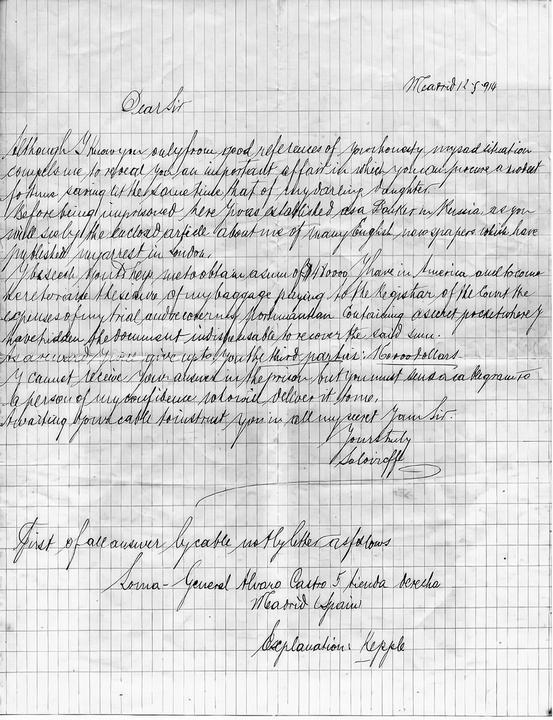 Madrid 12 5 914
Dear Sir
Although I know you only from good references of your honesty my sad situation
compels me to reveal you an important affair in which you can procure a modest
fortune saving at the same time that of my darling daughter.
Before being imprisoned here I was established as a Banker in Russia as you
will see by the enclosed article about me of many English newspapers which have
published my arrest in London.
I beseech you to help me to obtain a sum of $480000 I have in America and to come
here to raise the seizure of my baggage paying to the Registrar of the Court the
expenses of my trial and recover my portmanteau containing a secret pocket where I
have hidden the document indispensable to recover the said sum.
As a reward I will give up to you the third part viz: 160000 dollars.
I cannot receive your answer in the prison but you must send a cablegram to
a person of my confidence who will deliver it to me.
Awaiting your cable to instruct you in all my secret I am Sir.
Yours truly
First of all answer by cable not by letter as follows
General Alvaro Castro 5 tienda derecha
Madrid (Spain)
Explanation: Kepple